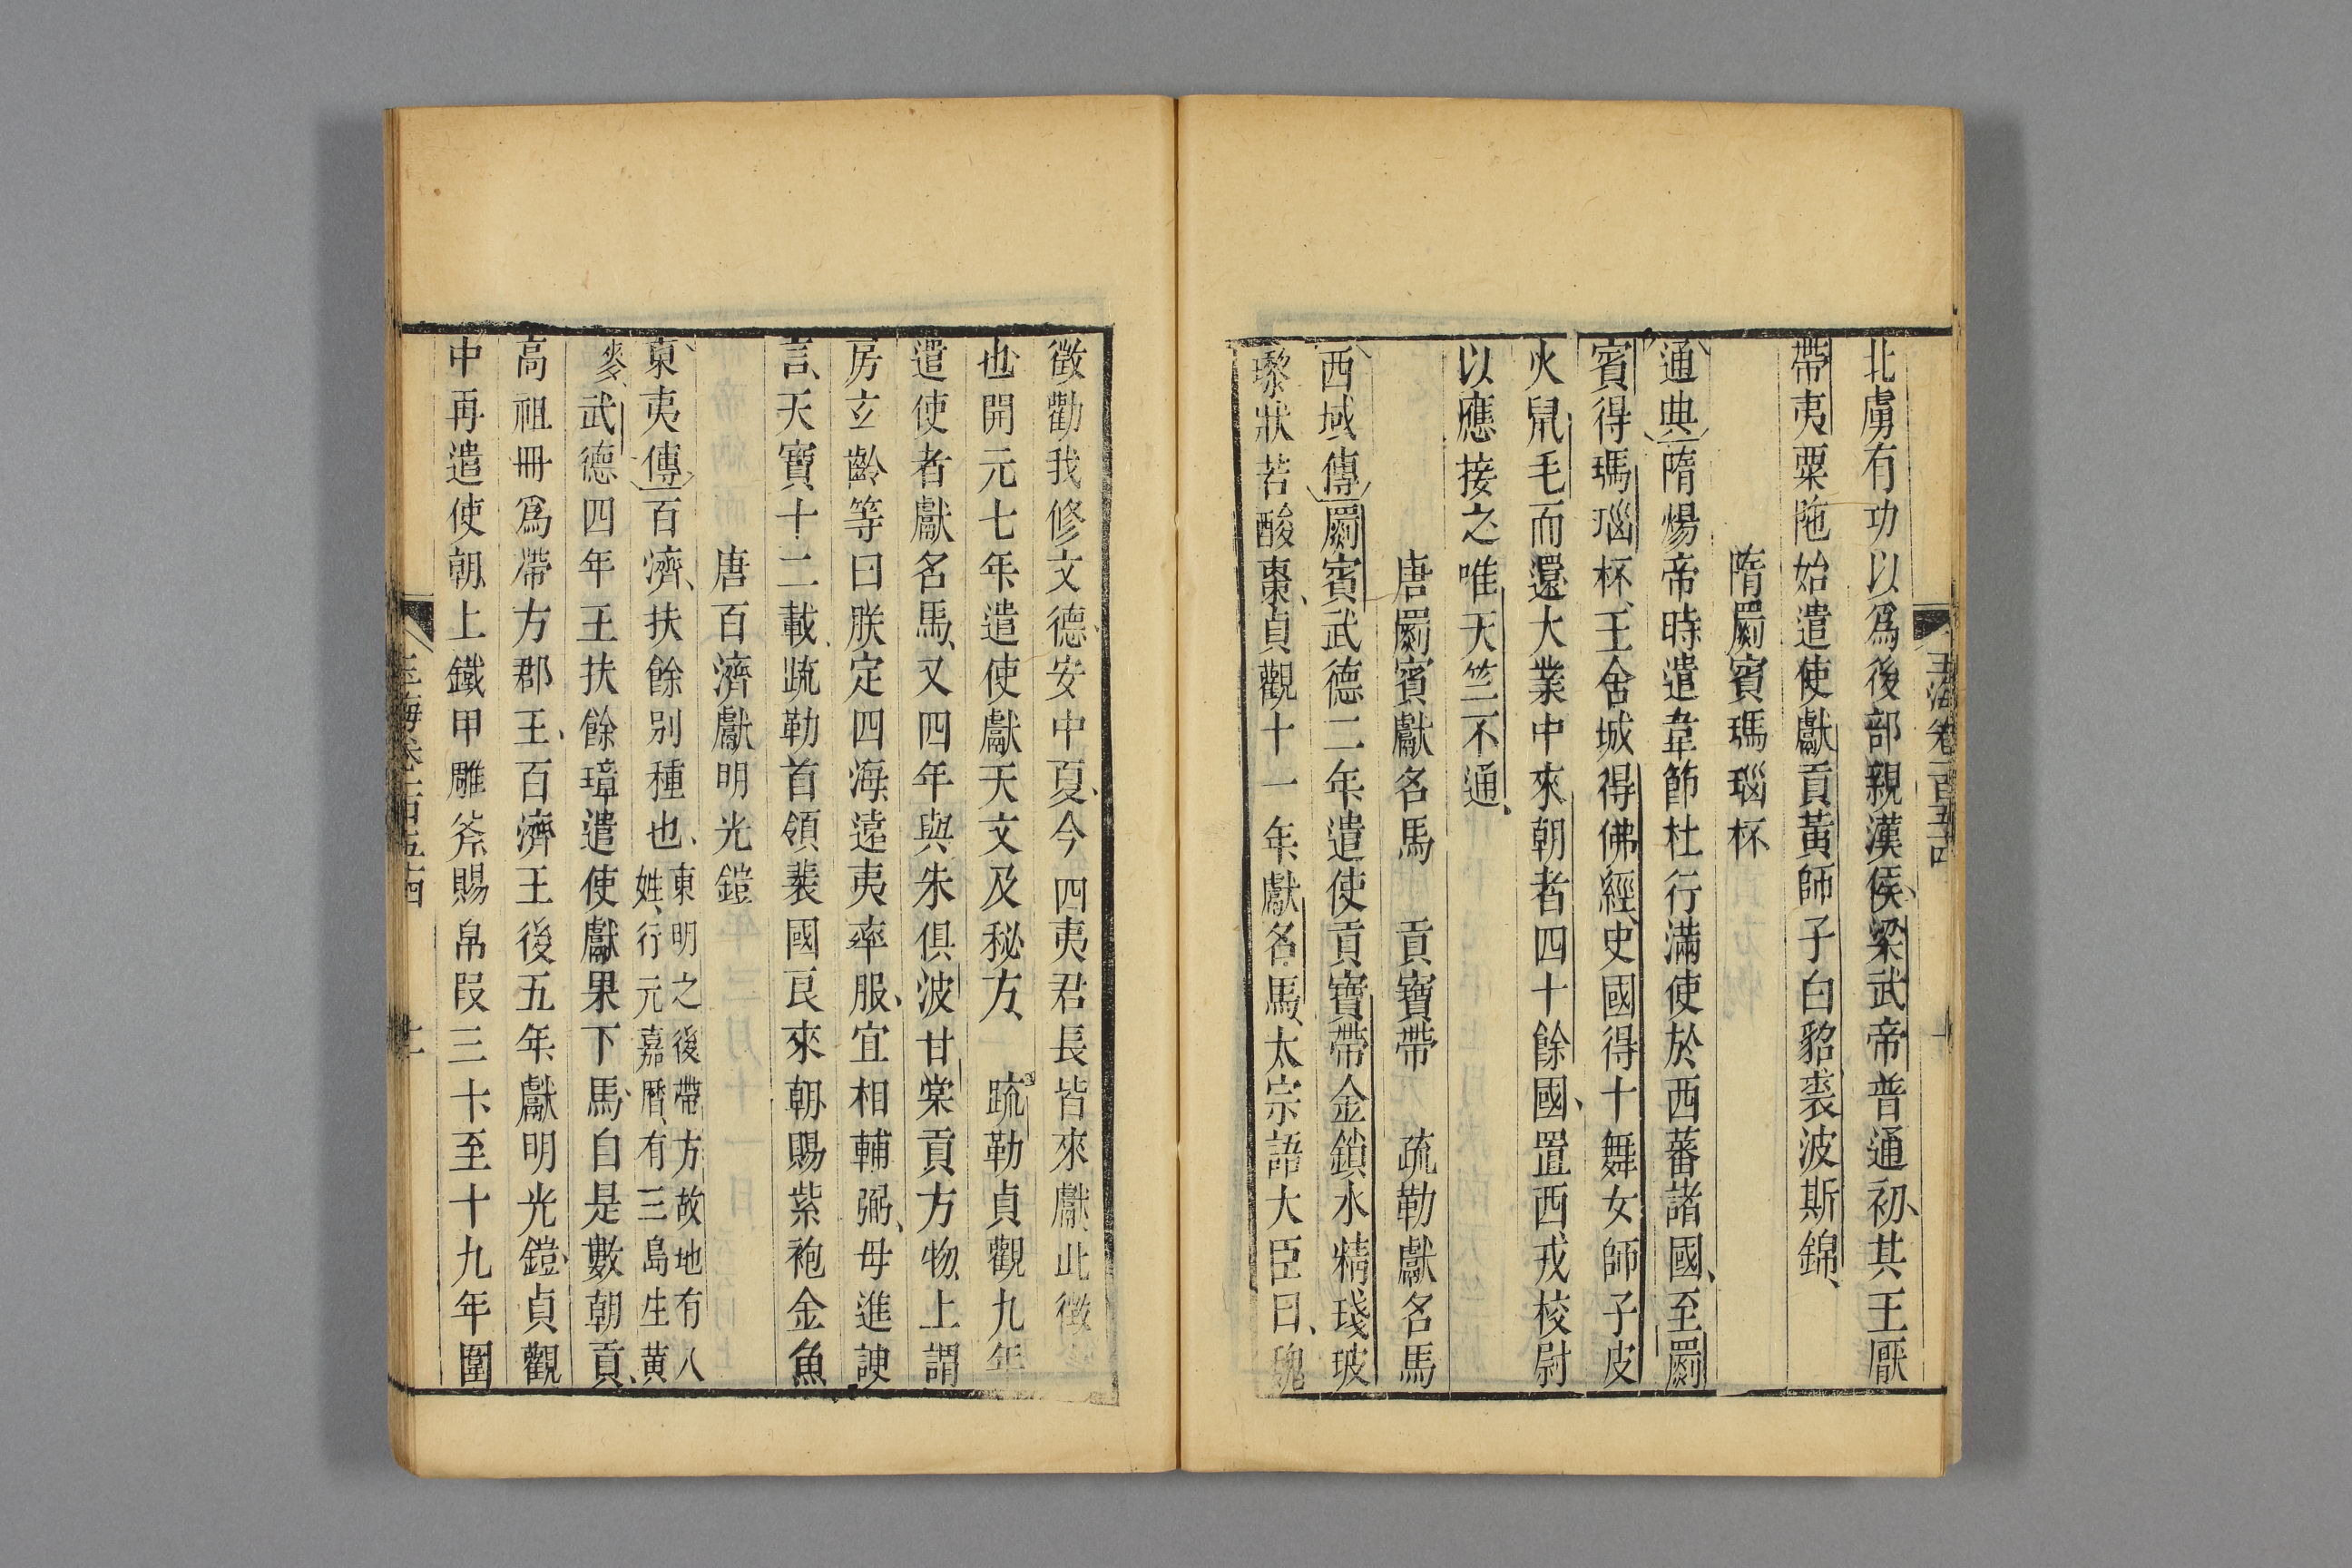 北虜有功以爲後部親漢侯梁武帝普通初其王厭
帶夷粟陁始遣使獻貢黃師子白貂裘波斯錦
隋罽賓瑪瑙杯
通典隋煬帝時遣韋節杜行滿使於西蕃諸國至罽
賓得瑪瑙杯王舍城得佛經史國得十舞女師子皮
火鼠毛而還大業中來朝者四十餘國置西戎校尉
以應接之唯天竺不通
唐罽賓獻名馬 貢寶帶 疏勒獻名馬
西域傳罽賓武德二年遣使貢寶帶金鎖水精琖玻
瓈狀若酸棗貞觀十一年獻名馬太宗語大臣曰魏
徵勸我修文德安中夏今四夷君長皆來獻此徵
也開元七年遣使獻天文及秘方 疏勒貞觀九年
遣使者獻名馬又四年與朱俱波甘棠貢方物上謂
房玄齡等曰朕定四海遠夷率服宜相輔弼毋進諛
言天寶十二載疏勒首領裴國良來朝賜紫袍金魚
唐百濟獻明光鎧
東夷傳百濟扶餘別種也東明之後帶方故地有八
姓行元嘉曆有三島生黃
麥武德四年王扶餘璋遣使獻果下馬自是數朝貢
高祖冊爲帶方郡王百濟王後五年獻明光鎧貞觀
中再遣使朝上鐵甲雕斧賜帛段三千至十九年圍
玉海卷二百五十四